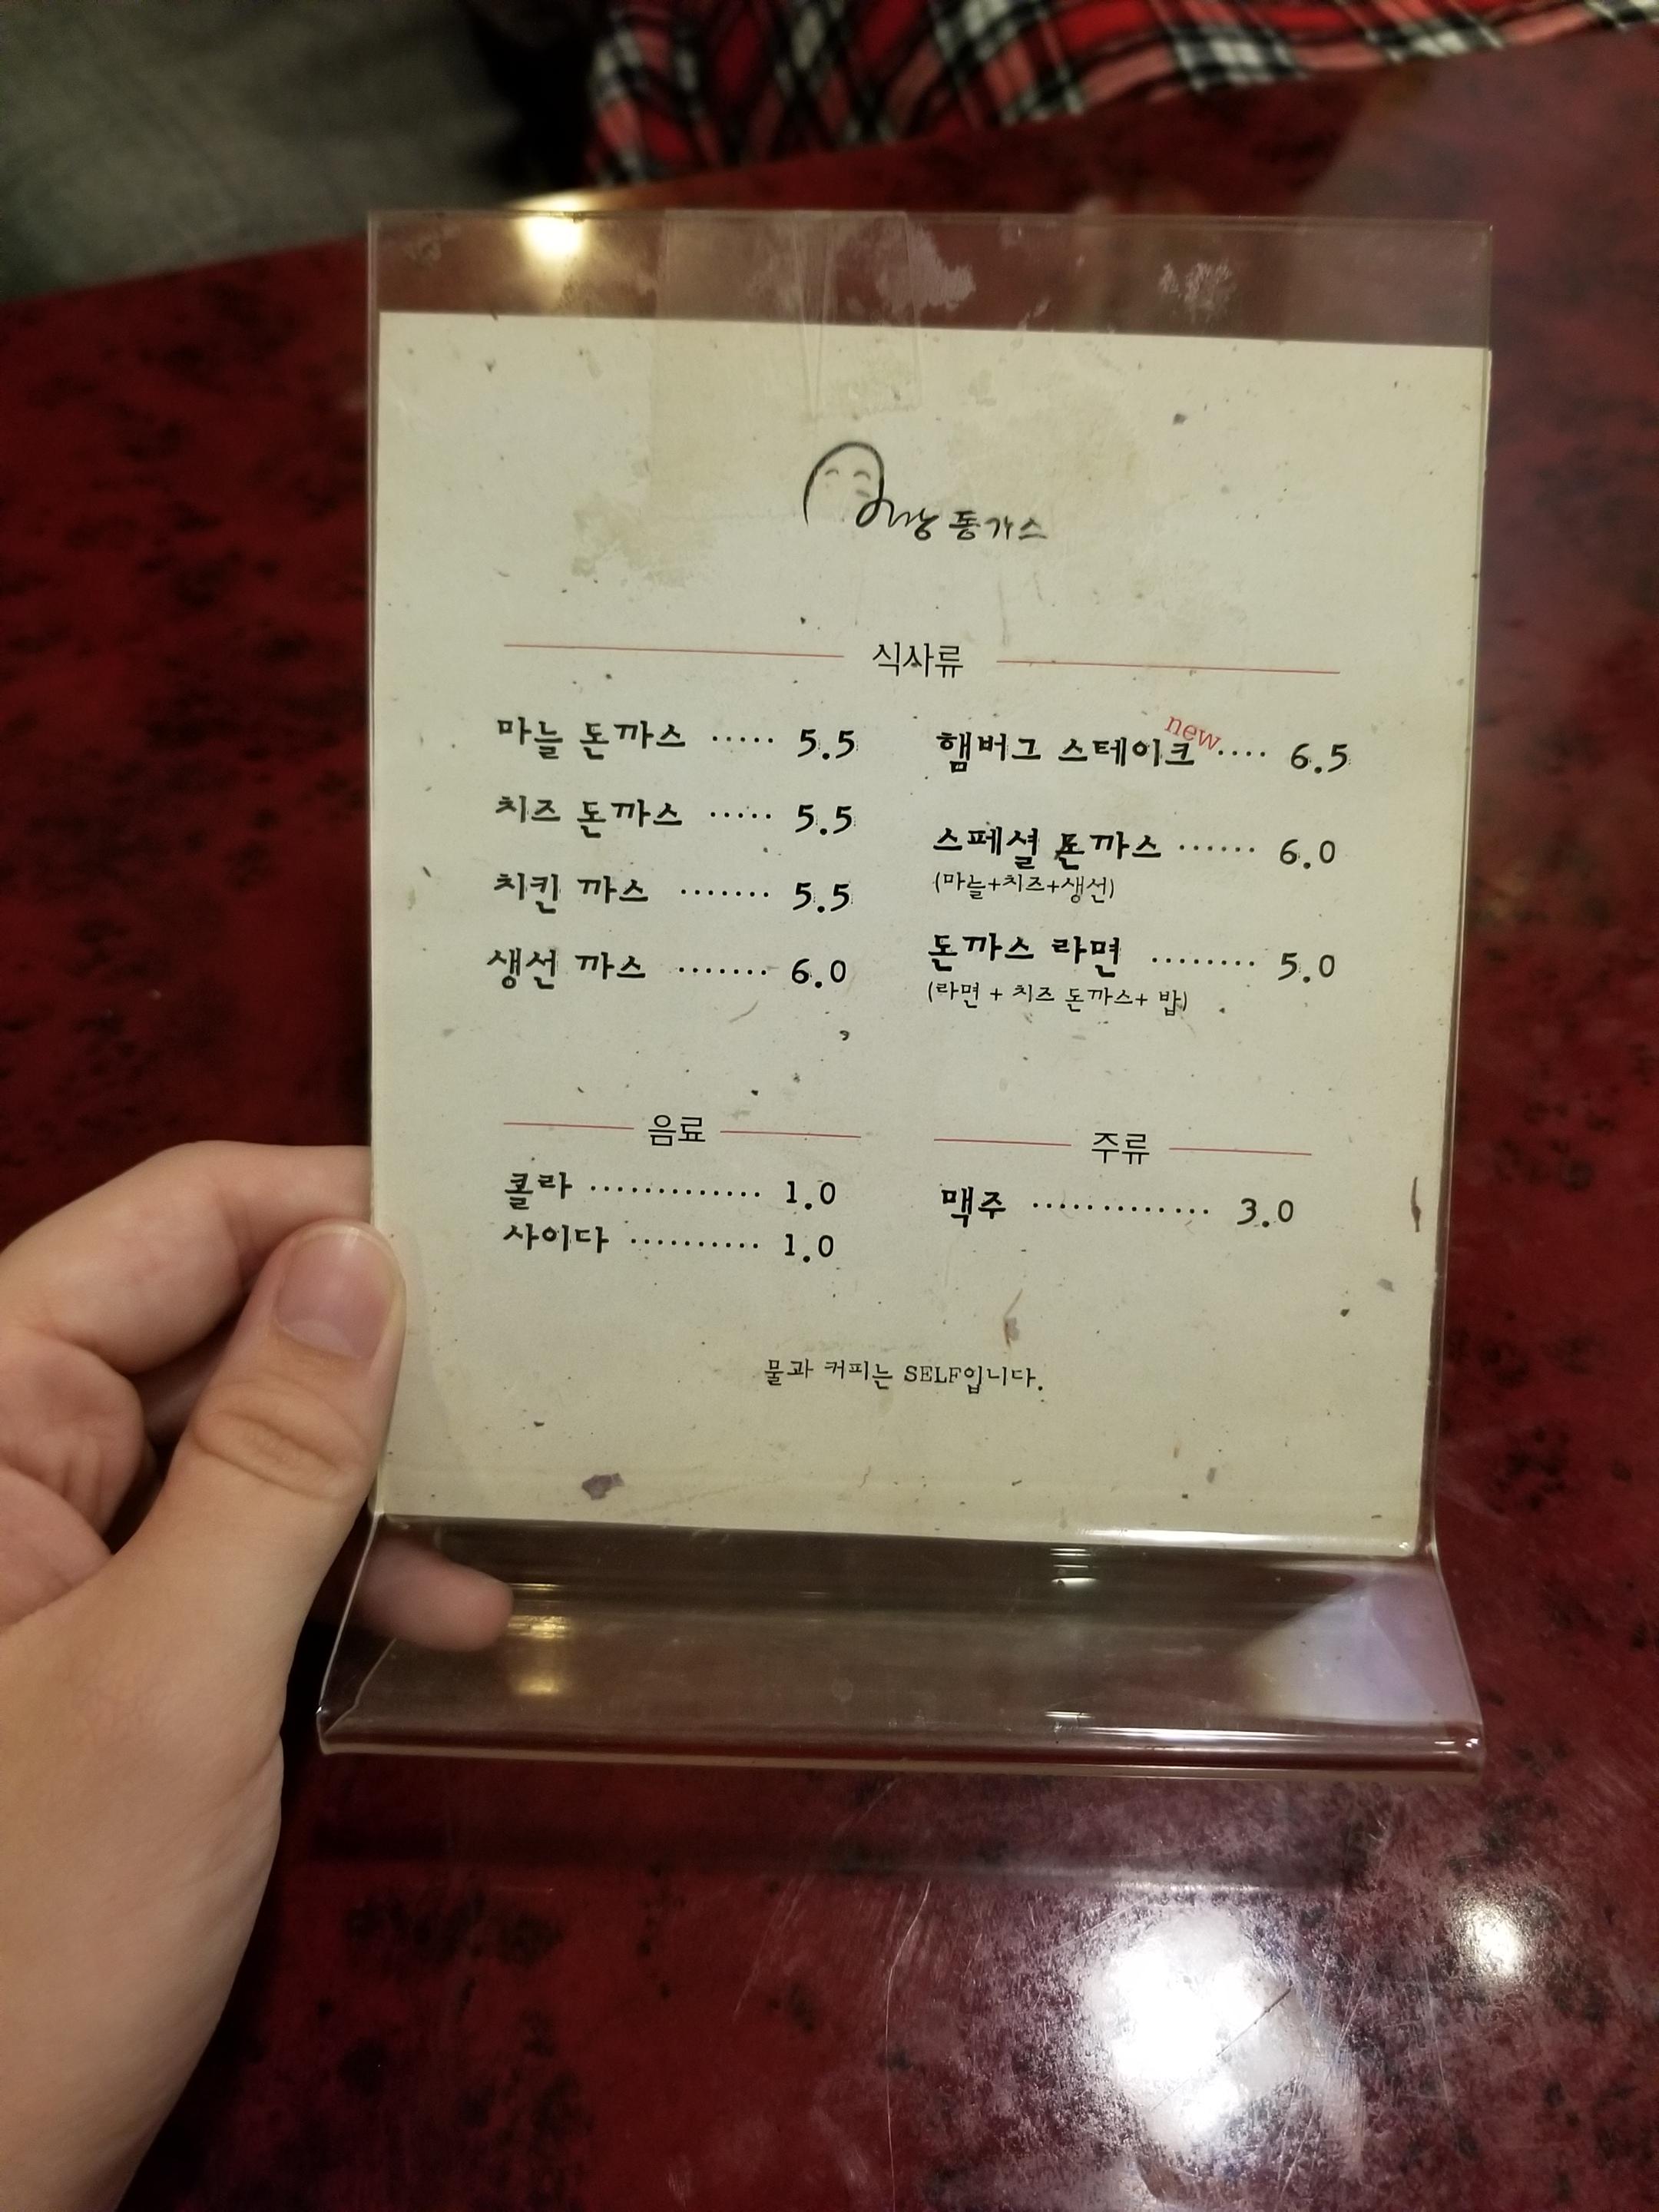 돈가스
식사류
마늘 돈까스 ····· 5.5
치즈 돈까스 ····· 5.5
치킨 까스 ······· 5.5
생선 까스 ······· 6.0
new
햄버그 스테이크 ···· 6.5
스페셜 돈까스 ······ 6.0
(마늘+치즈+생선)
돈까스 라면 ········ 5.0
(라면 + 치즈 돈까스+ 밥)
음료
콜라 ············· 1.0
사이다 ·········· 1.0
주류
맥주 ············· 3.0
물과 커피는 SELF입니다.